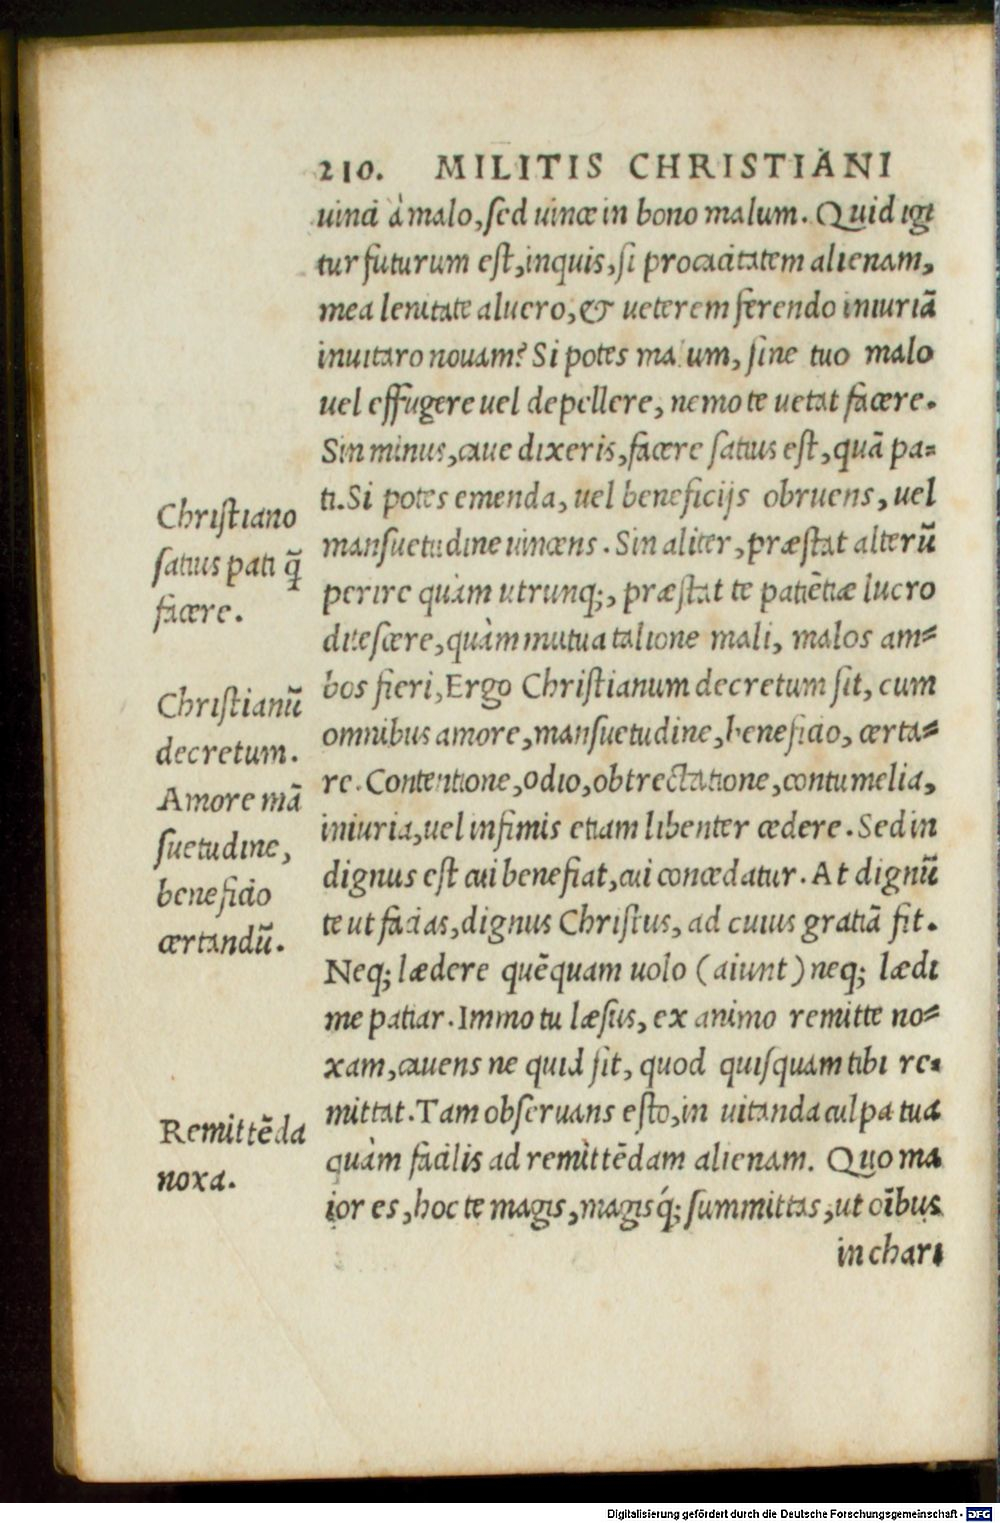 210. MILITIS CHRISTIANI
uinci à malo, sed uince in bono malum. Quid igi
tur futurum est, inquis, si procacitatem alienam,
mea lenitate aluero, & ueterem ferendo iniuriā
inuitaro nouam? Si potes malum, sine tuo malo
uel effugere uel depellere, nemo te uetat facere.
Sin minus, caue dixeris, facere satius est, quā pa-
ti. Si potes emenda, uel beneficijs obruens, uel
mansuetudine uincens. Sin aliter, præstat alterū
perire quàm utrunq;, præstat te patiētiæ lucro
ditescere, quàm mutua talione mali, malos am-
bos fieri, Ergo Christianum decretum sit, cum
omnibus amore, mansuetudine, beneficio, certa-
re. Contentione, odio, obtrectatione, contumelia,
iniuria, uel infimis etiam libenter cedere. Sed in
dignus est cui benefiat, cui concedatur. At dignū
te ut facias, dignus Christus, ad cuius gratiā fit.
Neq; lædere quēquam uolo (aiunt) neq; lædi
me patiar. Immo tu læsus, ex animo remitte no-
xam, cauens ne quid sit, quod quisquam tibi re-
mittat. Tam obseruans esto, in uitanda culpa tua
quàm facilis ad remittēdam alienam. Quo ma
ior es, hoc te magis, magisq́; summittas, ut oībus
in chari
Christiano
satius pati q̄
facere.
Christianū
decretum.
Amore mā
suetudine,
beneficio
certandū.
Remittēda
noxa.
Digitalisierung gefördert durch die Deutsche Forschungsgemeinschaft - DFG